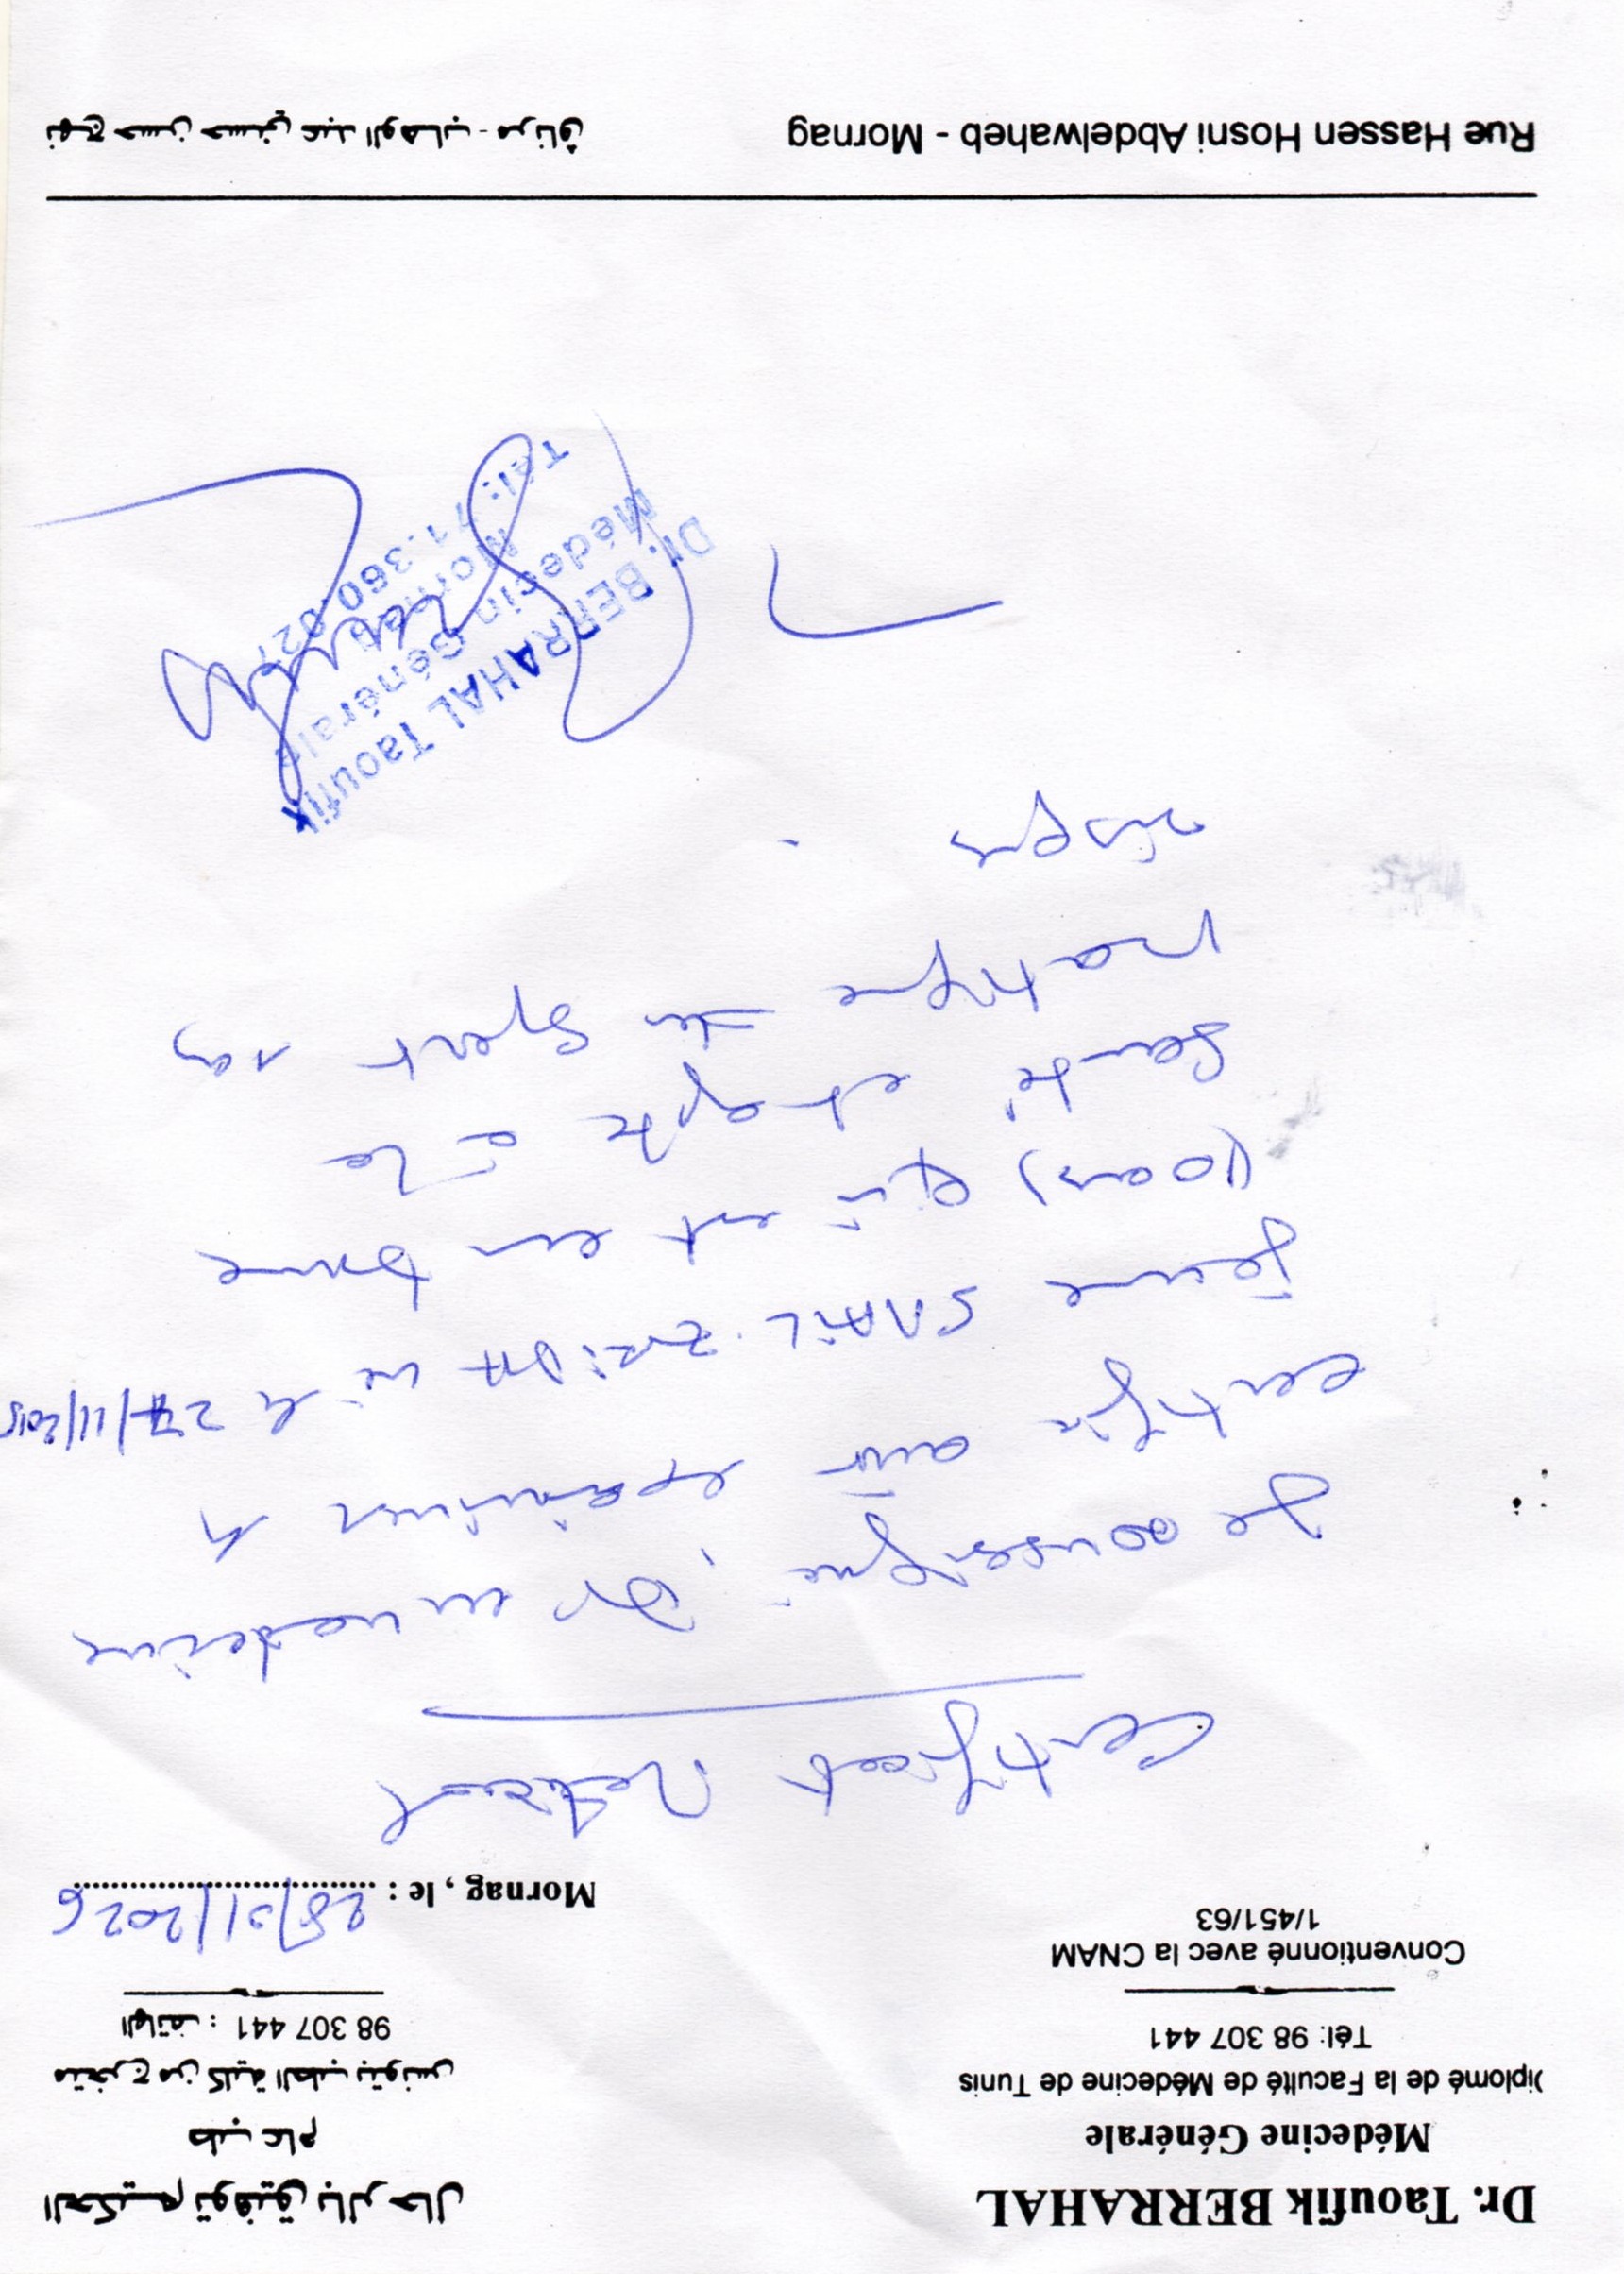 Dr. Taoufik BERRAHAL
Médecine Générale
Diplomé de la Faculté de Médecine de Tunis
Tél: 98 307 441
Conventionné avec la CNAM
1/451/63
الحكيم توفيق بالرحال
طب عام
متخرج من كلية الطب بتونس
الهاتف : 98 307 441
Mornag , le : 28/01/2026
Certificat Medical
Je soussigné, Dr en medecine
certifie avoir examiné
jeune SMAIL né le 27/11/2015
(10 ans) qui est en bonne
santé et apte à la
pratique du sport
Dr. BERRAHAL Taoufik
Médecin Générale
Mornag
Tél: 71.360.027
Rue Hassen Hosni Abdelwaheb - Mornag
نهج حسن حسني عبد الوهاب - مرناق